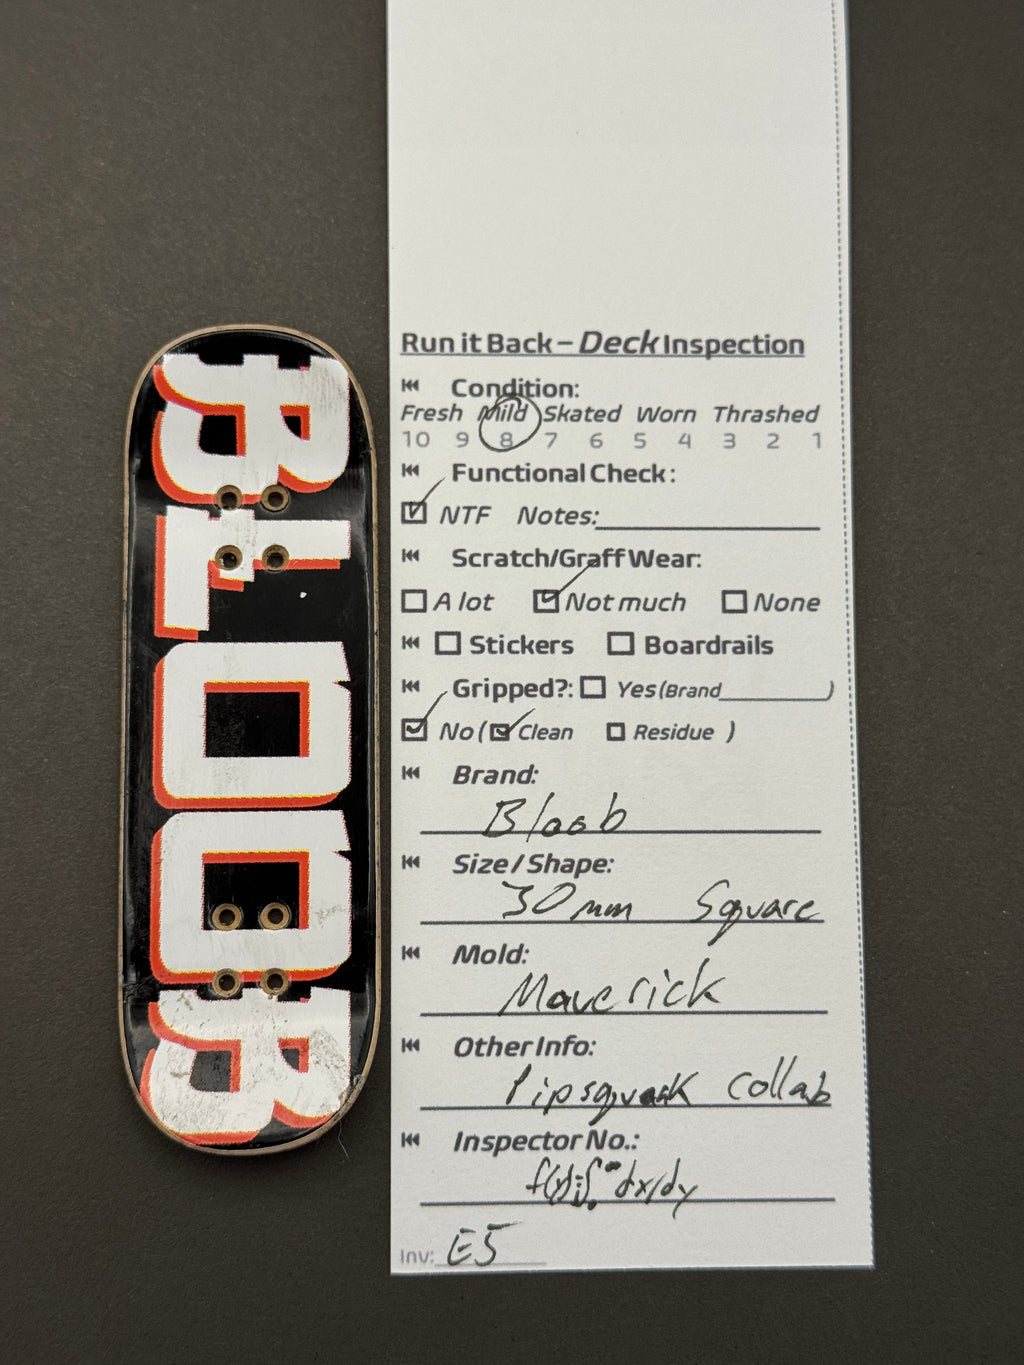 BLOOB
Run it Back – Deck Inspection
Condition:
Fresh Mild Skated Worn Thrashed
10 9 8 7 6 5 4 3 2 1
Functional Check:
NTF Notes:
Scratch/Graff Wear:
A lot Not much None
Stickers Boardrails
Gripped?: Yes (Brand )
No ( Clean Residue )
Brand:
Bloob
Size / Shape:
30mm Square
Mold:
Maverick
Other Info:
Pipsqueak collab
Inspector No.:
Inv: E5